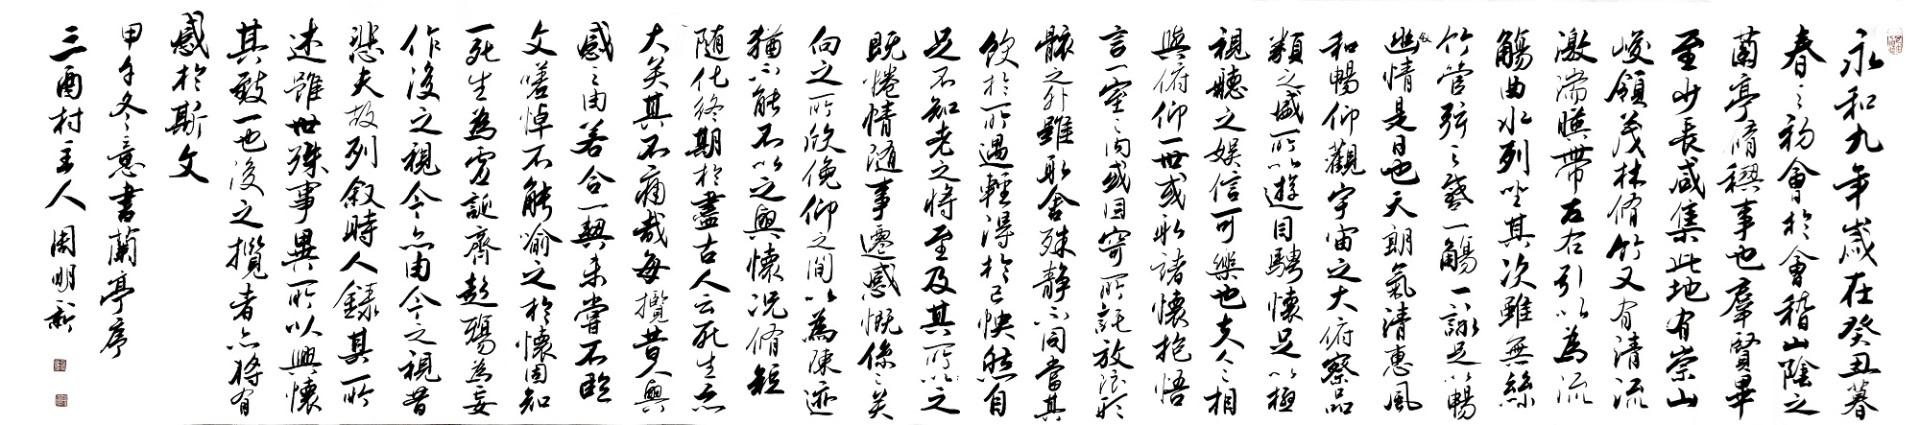 永和九年歲在癸丑暮
春之初會於會稽山陰之
蘭亭脩稧事也羣賢畢
至少長咸集此地有崇山
峻領茂林脩竹又有清流
激湍暎帶左右引以為流
觴曲水列坐其次雖無絲
竹管弦之盛一觴一詠足以暢
敘幽情是日也天朗氣清惠風
和暢仰觀宇宙之大俯察品
類之盛所以遊目騁懷足以極
視聽之娛信可樂也夫人之相
與俯仰一世或取諸懷抱悟
言一室之內或因寄所託放浪形
骸之外雖取舍殊靜不同當其
欣於所遇輕得於己怏然自
足不知老之將至及其所之
既惓情隨事遷感慨係之矣
向之所欣俛仰之間以為陳迹
猶不能不以之興懷況脩短
随化終期於盡古人云死生亦
大矣其不痛哉每攬昔人興
感之由若合一契未嘗不臨
文嗟悼不能喻之於懷固知
一死生為虛誕齊彭殤為妄
作後之視今亦由今之視昔
悲夫故列敘時人錄其所
述雖世殊事異所以興懷
其致一也後之攬者亦將有
感於斯文
甲午冬意書蘭亭序
三酉村主人 周明新